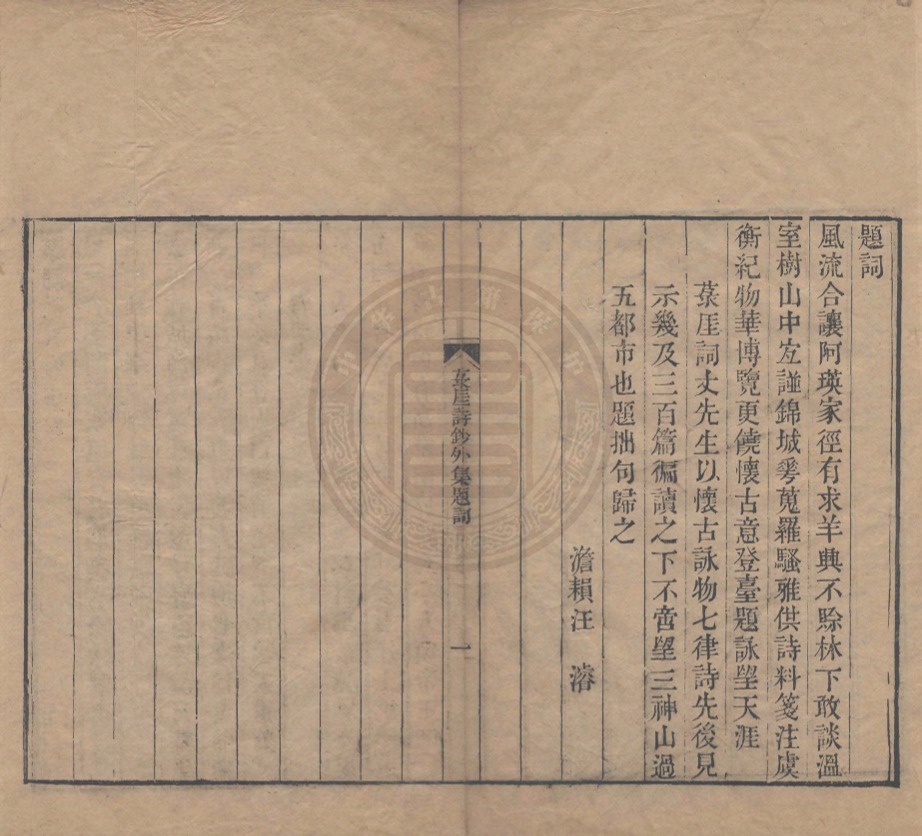 題詞
風流合讓阿瑛家徑有求羊興不賒林下敢談溫
室樹山中宐諩錦城𠌶蒐羅騷雅供詩料箋注虞
衡紀物華博覽更饒懷古意登臺題詠朢天涯
菉厓詞丈先生以懷古詠物七律詩先後見
示幾及三百篇徧讀之下不啻朢三神山過
五都市也題拙句歸之
澹賴汪 濬
菉厓詩鈔外集題詞
一